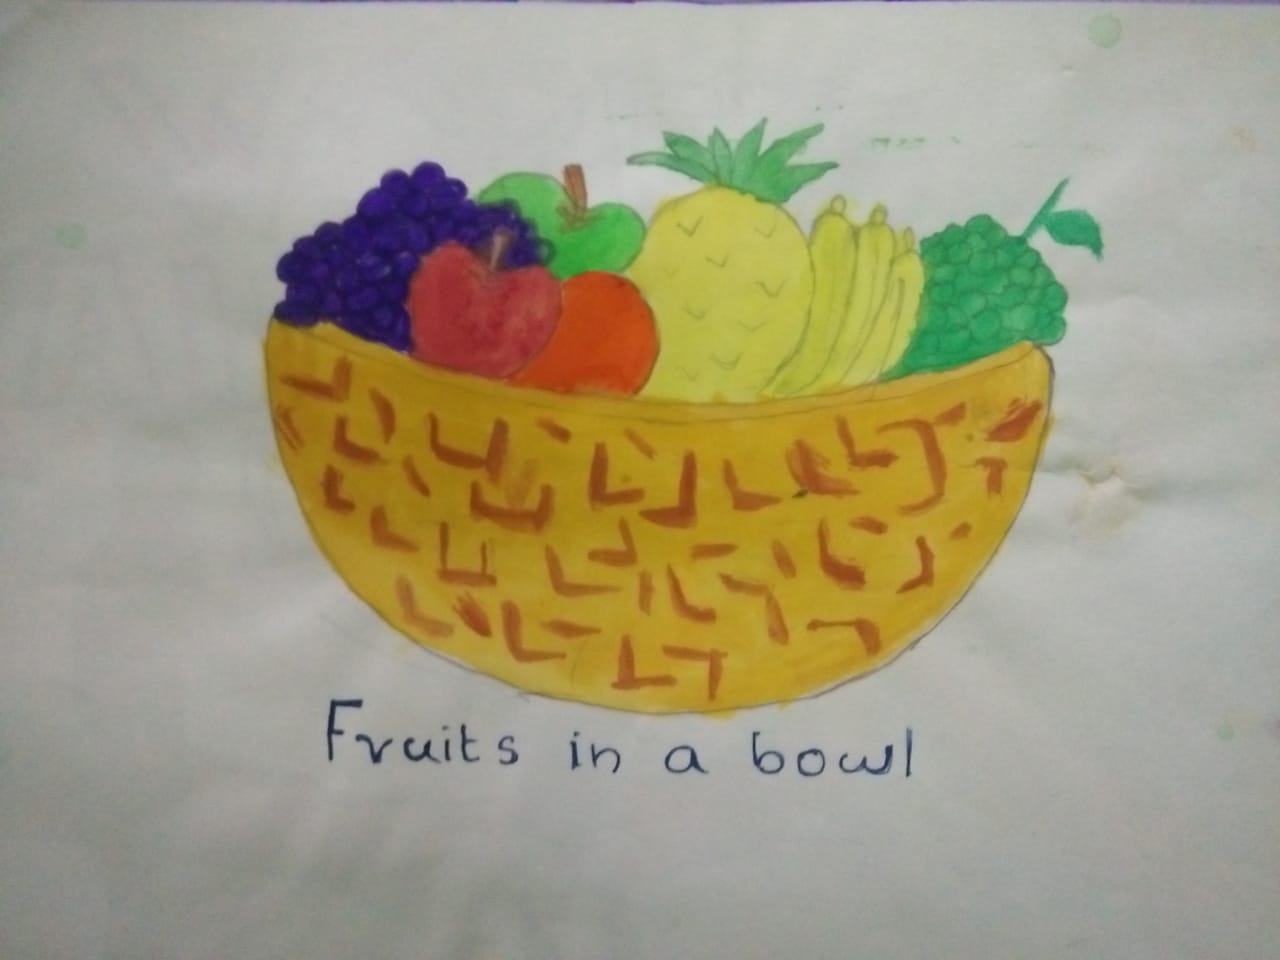 Fruits in a bowl